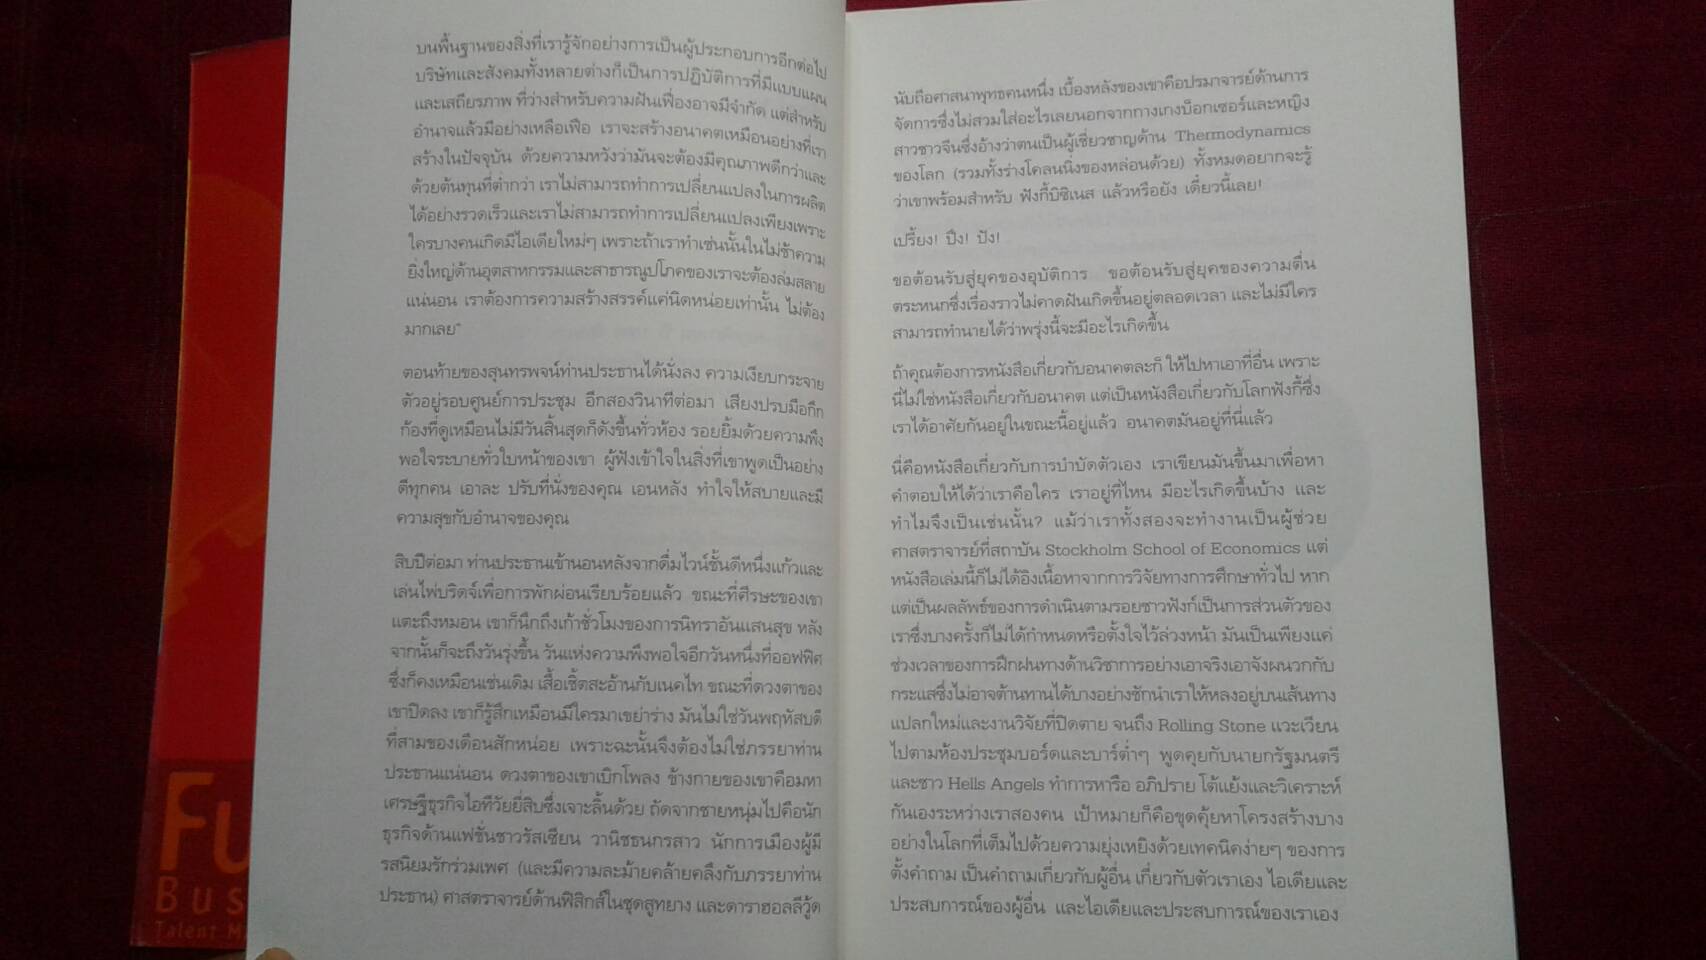 บนพื้นฐานของสิ่งที่เรารู้จักอย่างการเป็นผู้ประกอบการอีกต่อไป
บริษัทและสังคมทั้งหลายต่างก็เป็นการปฏิบัติการที่มีแบบแผน
และเสถียรภาพ ที่ว่างสำหรับความฝันเฟื่องอาจมีจำกัด แต่สำหรับ
อำนาจแล้วมีอย่างเหลือเฟือ เราจะสร้างอนาคตเหมือนอย่างที่เรา
สร้างในปัจจุบัน ด้วยความหวังว่ามันจะต้องมีคุณภาพดีกว่าและ
ด้วยต้นทุนที่ต่ำกว่า เราไม่สามารถทำการเปลี่ยนแปลงในการผลิต
ได้อย่างรวดเร็วและเราไม่สามารถทำการเปลี่ยนแปลงเพียงเพราะ
ใครบางคนเกิดมีไอเดียใหม่ๆ เพราะถ้าเราทำเช่นนั้นในไม่ช้าความ
ยิ่งใหญ่ด้านอุตสาหกรรมและสาธารณูปโภคของเราจะต้องล่มสลาย
แน่นอน เราต้องการความสร้างสรรค์แค่นิดหน่อยเท่านั้น ไม่ต้อง
มากเลย"
ตอนท้ายของสุนทรพจน์ท่านประธานได้นั่งลง ความเงียบกระจาย
ตัวอยู่รอบศูนย์การประชุม อีกสองวินาทีต่อมา เสียงปรบมือกึก
ก้องที่ดูเหมือนไม่มีวันสิ้นสุดก็ดังขึ้นทั่วห้อง รอยยิ้มด้วยความพึง
พอใจระบายทั่วใบหน้าของเขา ผู้ฟังเข้าใจในสิ่งที่เขาพูดเป็นอย่าง
ดีทุกคน เอาละ ปรับที่นั่งของคุณ เอนหลัง ทำใจให้สบายและมี
ความสุขกับอำนาจของคุณ
สิบปีต่อมา ท่านประธานเข้านอนหลังจากดื่มไวน์ชั้นดีหนึ่งแก้วและ
เล่นไพ่บริดจ์เพื่อการพักผ่อนเรียบร้อยแล้ว ขณะที่ศีรษะของเขา
แตะถึงหมอน เขาก็นึกถึงเก้าชั่วโมงของการนิทราอันแสนสุข หลัง
จากนั้นก็จะถึงวันรุ่งขึ้น วันแห่งความพึงพอใจอีกวันหนึ่งที่ออฟฟิศ
ซึ่งก็คงเหมือนเช่นเดิม เสื้อเชิ้ตสะอ้านกับเนคไท ขณะที่ดวงตาของ
เขาปิดลง เขาก็รู้สึกเหมือนมีใครมาเขย่าร่าง มันไม่ใช่วันพฤหัสบดี
ที่สามของเดือนสักหน่อย เพราะฉะนั้นจึงต้องไม่ใช่ภรรยาท่าน
ประธานแน่นอน ดวงตาของเขาเบิกโพลง ข้างกายของเขาคือมหา
เศรษฐีธุรกิจไอทีวัยยี่สิบซึ่งเจาะลิ้นด้วย ถัดจากชายหนุ่มไปคือนัก
ธุรกิจด้านแฟชั่นชาวรัสเซียน วานิชธนกรสาว นักการเมืองผู้มี
รสนิยมรักร่วมเพศ (และมีความละม้ายคล้ายคลึงกับภรรยาท่าน
ประธาน) ศาสตราจารย์ด้านฟิสิกส์ในชุดสูทยาง และดาราฮอลลีวู้ด
นับถือศาสนาพุทธคนหนึ่ง เบื้องหลังของเขาคือปรมาจารย์ด้านการ
จัดการซึ่งไม่สวมใส่อะไรเลยนอกจากกางเกงบ็อกเซอร์และหญิง
สาวชาวจีนซึ่งอ้างว่าตนเป็นผู้เชี่ยวชาญด้าน Thermodynamics
ของโลก (รวมทั้งร่างโคลนนิ่งของหล่อนด้วย) ทั้งหมดอยากจะรู้
ว่าเขาพร้อมสำหรับ ฟังกี้บิซิเนส แล้วหรือยัง เดี๋ยวนี้เลย!
เปรี้ยง! ปึง! ปัง!
ขอต้อนรับสู่ยุคของอุบัติการ ขอต้อนรับสู่ยุคของความตื่น
ตระหนกซึ่งเรื่องราวไม่คาดฝันเกิดขึ้นอยู่ตลอดเวลา และไม่มีใคร
สามารถทำนายได้ว่าพรุ่งนี้จะมีอะไรเกิดขึ้น
ถ้าคุณต้องการหนังสือเกี่ยวกับอนาคตละก็ ให้ไปหาเอาที่อื่น เพราะ
นี่ไม่ใช่หนังสือเกี่ยวกับอนาคต แต่เป็นหนังสือเกี่ยวกับโลกฟังกี้ซึ่ง
เราได้อาศัยกันอยู่ในขณะนี้อยู่แล้ว อนาคตมันอยู่ที่นี่แล้ว
นี่คือหนังสือเกี่ยวกับการบำบัดตัวเอง เราเขียนมันขึ้นมาเพื่อหา
คำตอบให้ได้ว่าเราคือใคร เราอยู่ที่ไหน มีอะไรเกิดขึ้นบ้าง และ
ทำไมจึงเป็นเช่นนั้น? แม้ว่าเราทั้งสองจะทำงานเป็นผู้ช่วย
ศาสตราจารย์ที่สถาบัน Stockholm School of Economics แต่
หนังสือเล่มนี้ก็ไม่ได้อิงเนื้อหาจากการวิจัยทางการศึกษาทั่วไป หาก
แต่เป็นผลลัพธ์ของการดำเนินตามรอยชาวฟังก์เป็นการส่วนตัวของ
เราซึ่งบางครั้งก็ไม่ได้กำหนดหรือตั้งใจไว้ล่วงหน้า มันเป็นเพียงแค่
ช่วงเวลาของการฝึกฝนทางด้านวิชาการอย่างเอาจริงเอาจังผนวกกับ
กระแสซึ่งไม่อาจต้านทานได้บางอย่างชักนำเราให้หลงอยู่บนเส้นทาง
แปลกใหม่และงานวิจัยที่ปิดตาย จนถึง Rolling Stone แวะเวียน
ไปตามห้องประชุมบอร์ดและบาร์ต่ำๆ พูดคุยกับนายกรัฐมนตรี
และชาว Hells Angels ทำการหารือ อภิปราย โต้แย้งและวิเคราะห์
กันเองระหว่างเราสองคน เป้าหมายก็คือขุดคุ้ยหาโครงสร้างบาง
อย่างในโลกที่เต็มไปด้วยความยุ่งเหยิงด้วยเทคนิคง่ายๆ ของการ
ตั้งคำถาม เป็นคำถามเกี่ยวกับผู้อื่น เกี่ยวกับตัวเราเอง ไอเดียและ
ประสบการณ์ของผู้อื่น และไอเดียและประสบการณ์ของเราเอง
Fu
Bus
Talent M